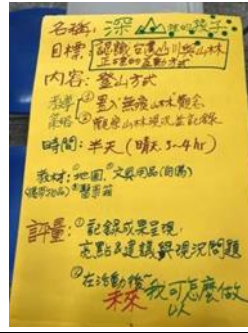 名稱:深山裡的孩子
目標:認識台灣山川與山林
正確的互動方式
內容:登山方式
教學 ①置入無痕山林觀念
策略 ②觀察山林現況並記錄
時間:半天(晴天 3~4hr)
教材:①地圖 ②文具用品(自備)
(攜帶物品) ③醫藥箱
評量:①記錄成果呈現
亮點&建議與現況問題
②在活動後~
未來我可以怎麼做